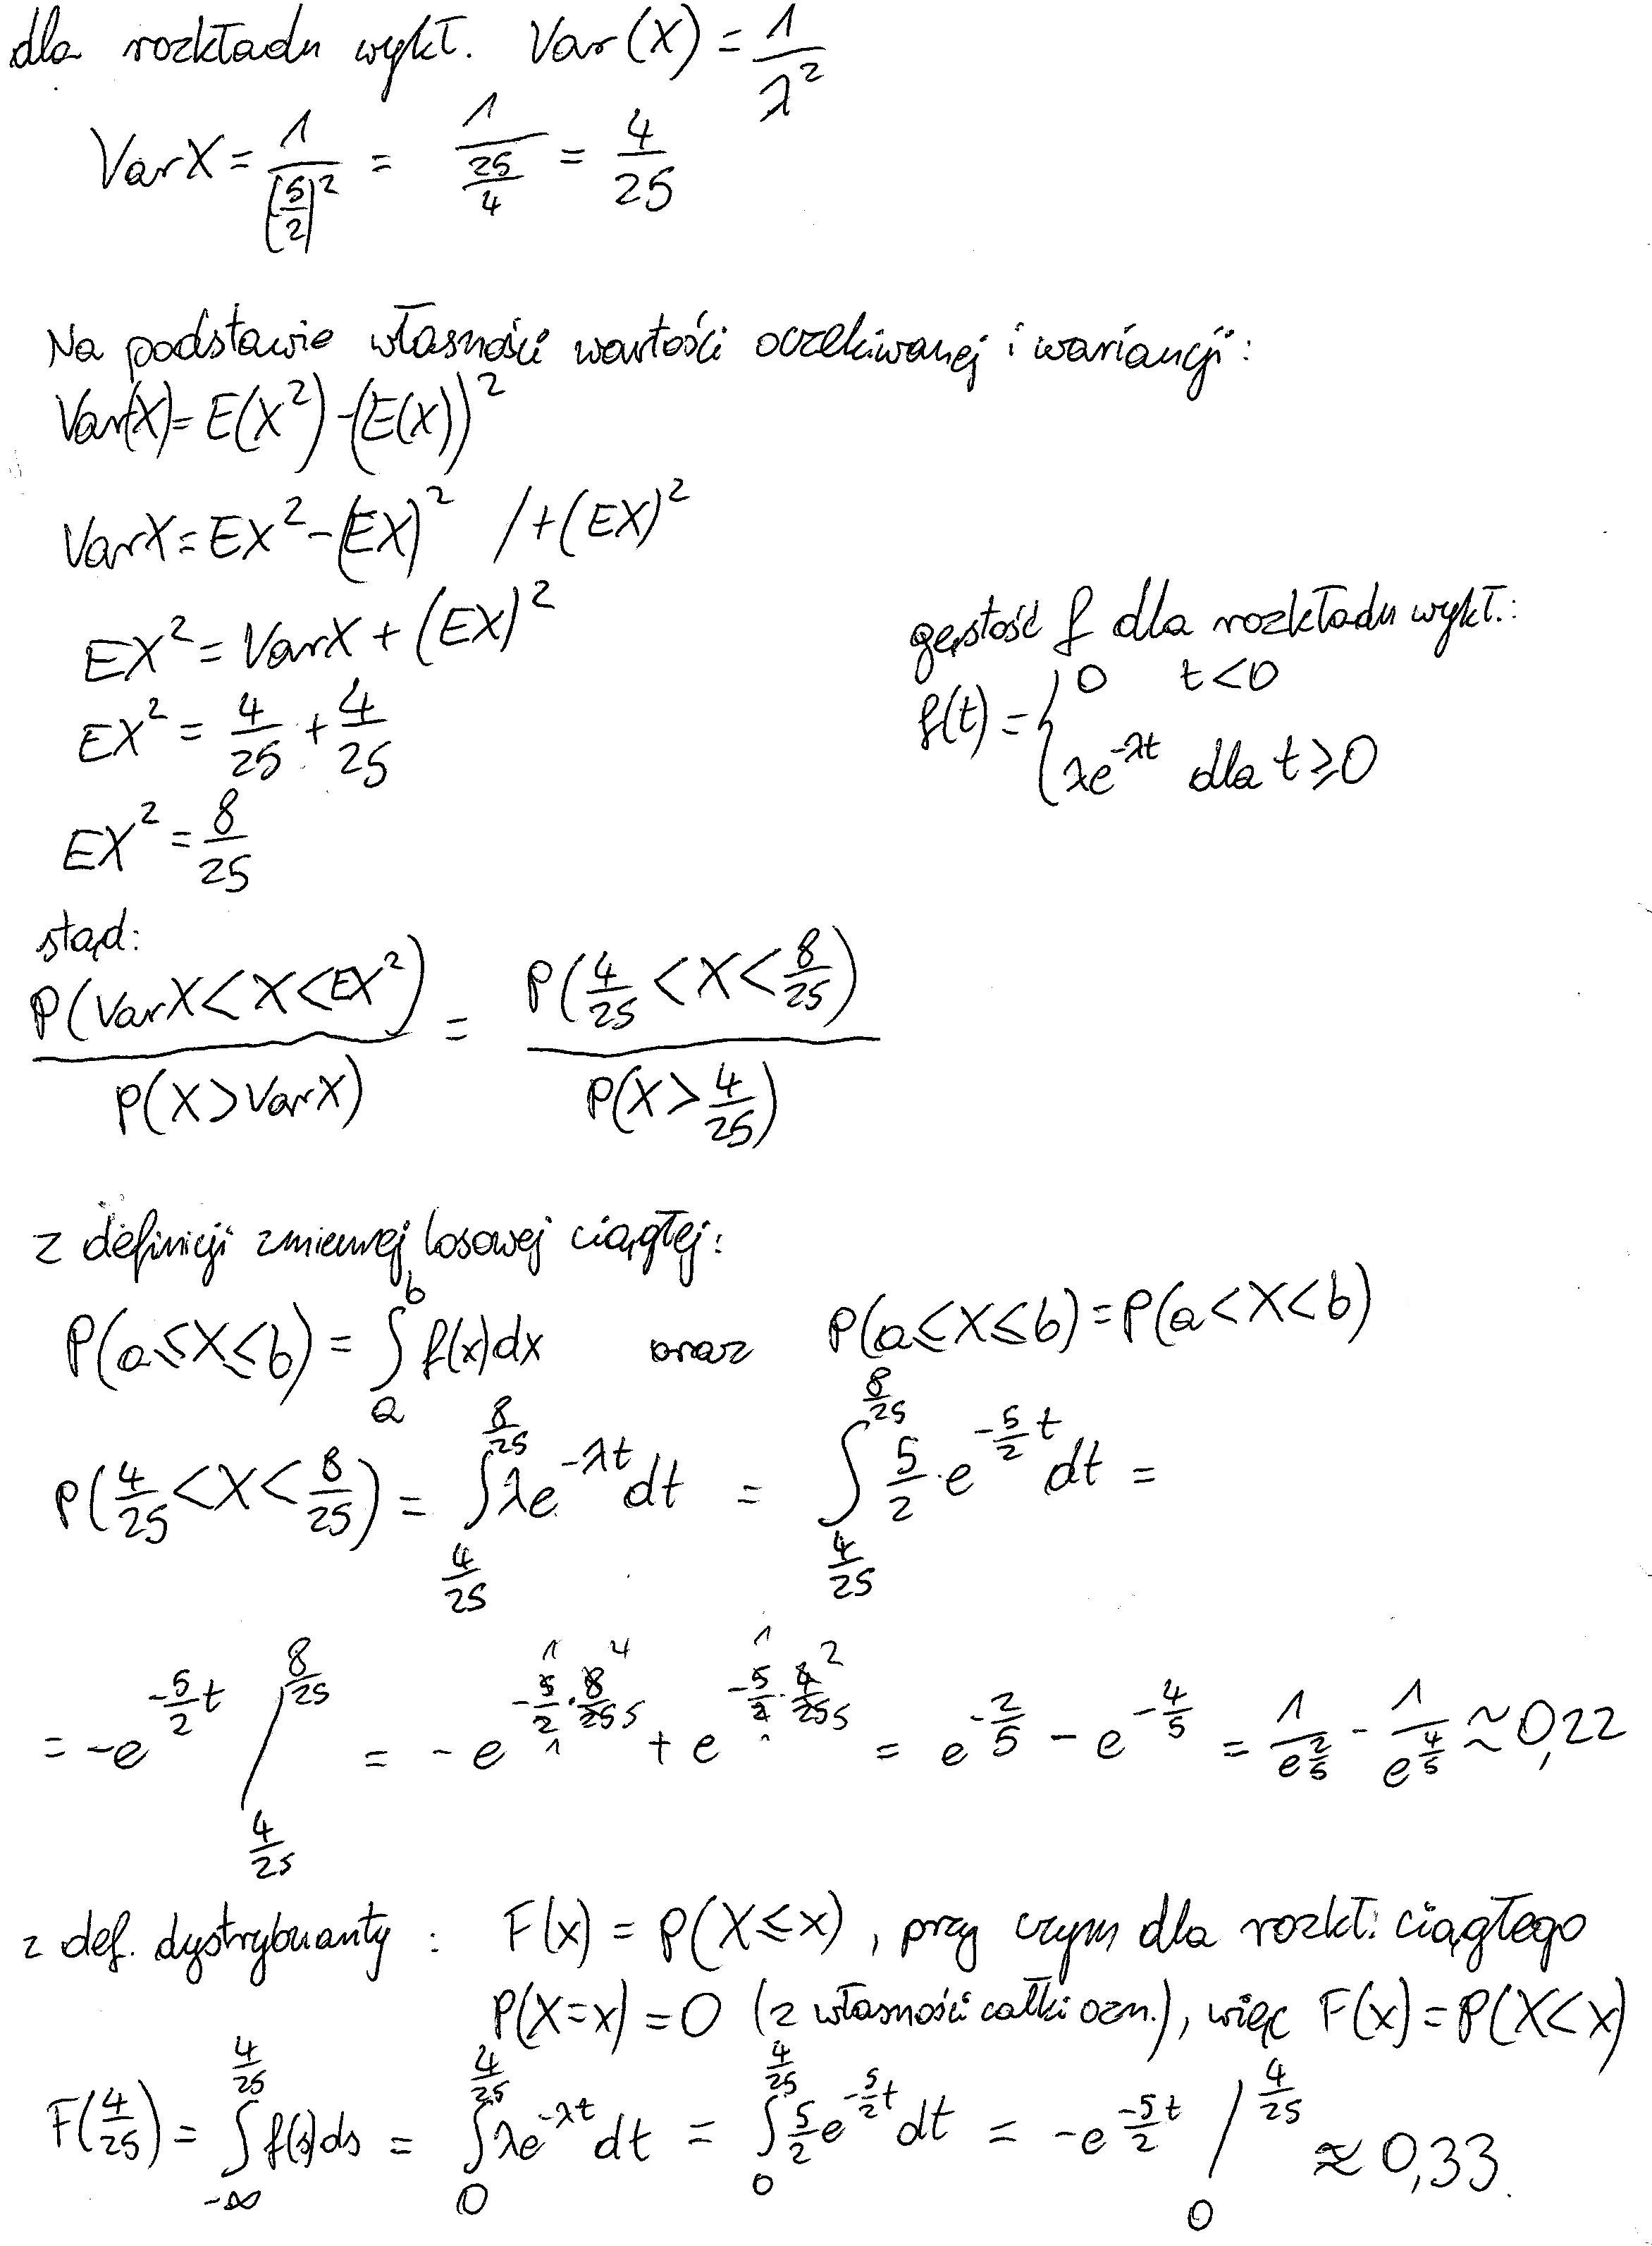 dla rozkładu wykł. Var(X) = 1/λ²
VarX = 1/(5/2)² = 1/(25/4) = 4/25
Na podstawie własności wartości oczekiwanej i wariancji:
Var(X) = E(X²) - (E(X))²
VarX = EX² - (EX)² / + (EX)²
EX² = VarX + (EX)²
EX² = 4/25 + 4/25
EX² = 8/25
gęstość f dla rozkładu wykł.:
f(t) = { 0 t < 0
λe^(-λt) dla t ≥ 0
stąd:
P(VarX < X < EX²) / P(X > VarX) = P(4/25 < X < 8/25) / P(X > 4/25)
z definicji zmiennej losowej ciągłej:
P(a ≤ X ≤ b) = ∫_a^b f(x)dx oraz P(a ≤ X ≤ b) = P(a < X < b)
P(4/25 < X < 8/25) = ∫_(4/25)^(8/25) λe^(-λt) dt = ∫_(4/25)^(8/25) 5/2 · e^(-5/2 t) dt =
= -e^(-5/2 t) /_(4/25)^(8/25) = -e^(-5/2 · 8/25) + e^(-5/2 · 4/25) = e^(-2/5) - e^(-4/5) = 1/e^(2/5) - 1/e^(4/5) ≈ 0,22
z def. dystrybuanty : F(x) = P(X ≤ x), przy czym dla rozkł. ciągłego
P(X=x) = 0 (z własności całki ozn.), więc F(x) = P(X < x)
F(4/25) = ∫_(-∞)^(4/25) f(s)ds = ∫_0^(4/25) λe^(-λt) dt = ∫_0^(4/25) 5/2 e^(-5/2 t) dt = -e^(-5/2 t) /_0^(4/25) ≈ 0,33.